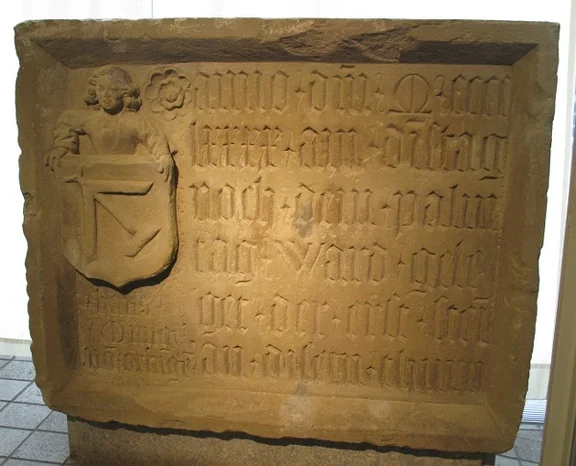 anno · dm̄ · M · cccc
lxxxx · am · dīstag
noch · dem · palm
tag · Ward · gele
get · der · erst · stei
an · disem · thurn
hans